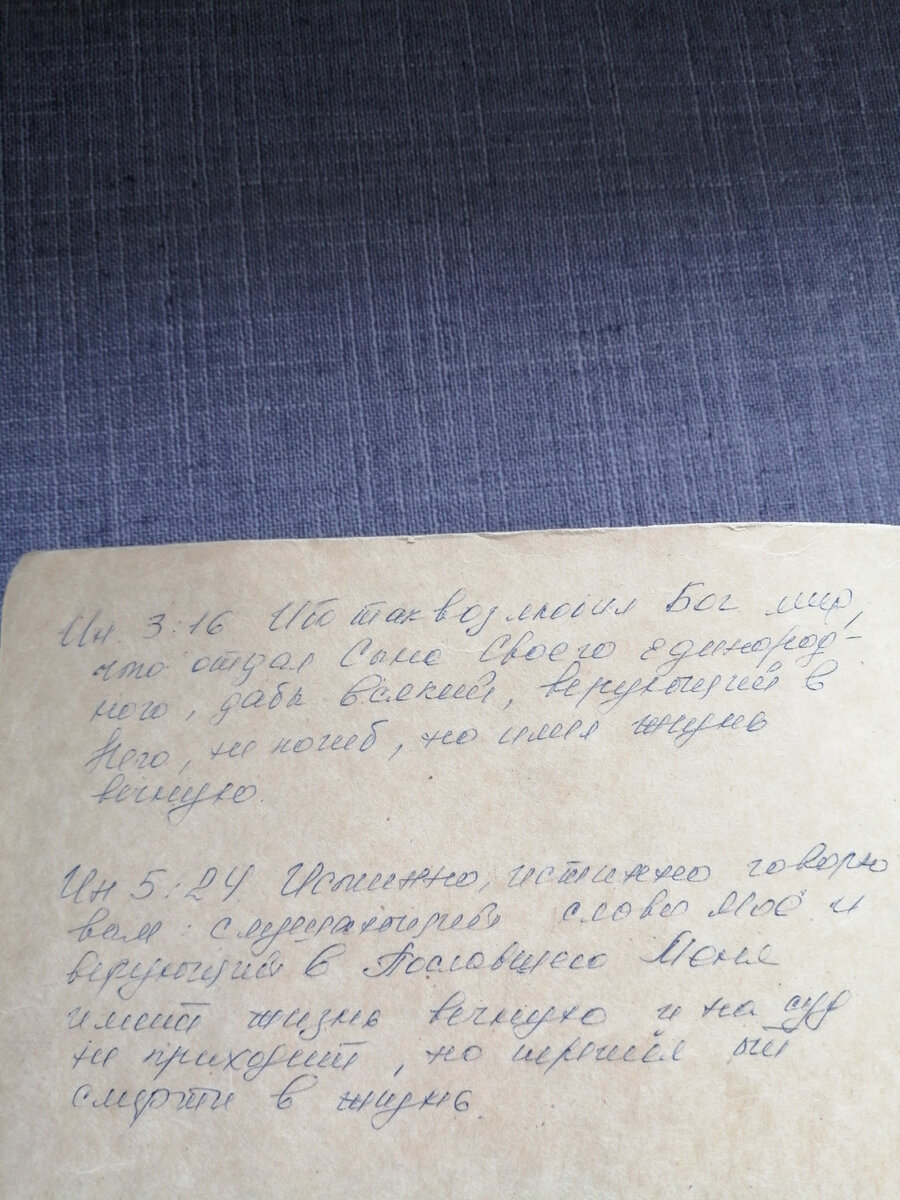 Ин. 3:16 Ибо так возлюбил Бог мир,
что отдал Сына Своего единород-
ного, дабы всякий, верующий в
Него, не погиб, но имел жизнь
вечную.
Ин 5:24. Истинно, истинно говорю
вам: слушающий слово Моё и
верующий в Пославшего Меня
имеет жизнь вечную и на суд
не приходит, но перешёл от
смерти в жизнь.